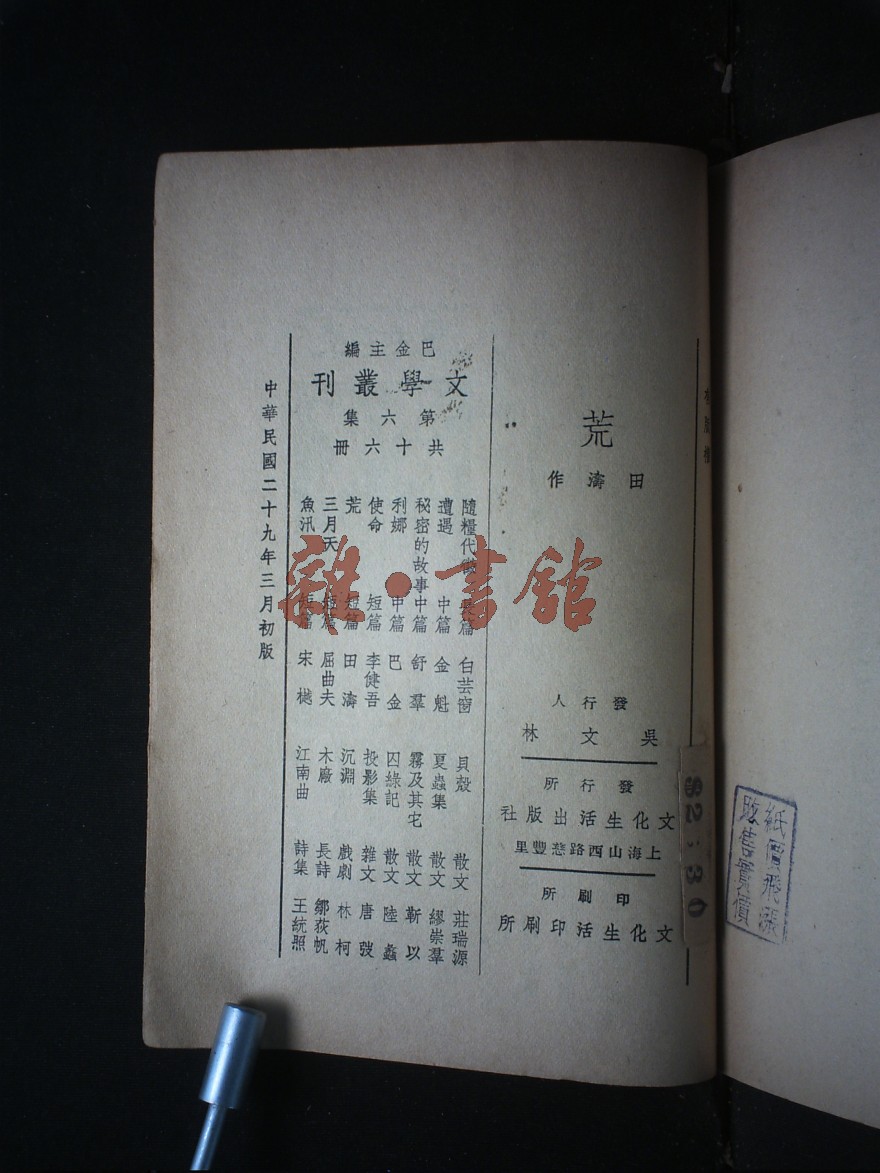 荒
田濤作
發行人
吳文林
發行所
文化生活出版社
上海山西路慈豐里
印刷所
文化生活印刷所
巴金主編
文學叢刊
第六集
共十六冊
隨糧代徵 長篇 白芸窗
遭遇 中篇 金魁
秘密的故事 中篇 舒羣
利娜 中篇 巴金
使命 短篇 李健吾
荒 短篇 田濤
三月天 短篇 屈曲夫
魚汛 短篇 宋樾
貝殼 散文 莊瑞源
夏蟲集 散文 繆崇羣
霧及其它 散文 靳以
囚綠記 散文 陸蠡
投影集 雜文 唐弢
沉淵 戲劇 林柯
木廠 長詩 鄒荻帆
江南曲 詩集 王統照
中華民國二十九年三月初版
紙價飛漲
售實價
雜·書館